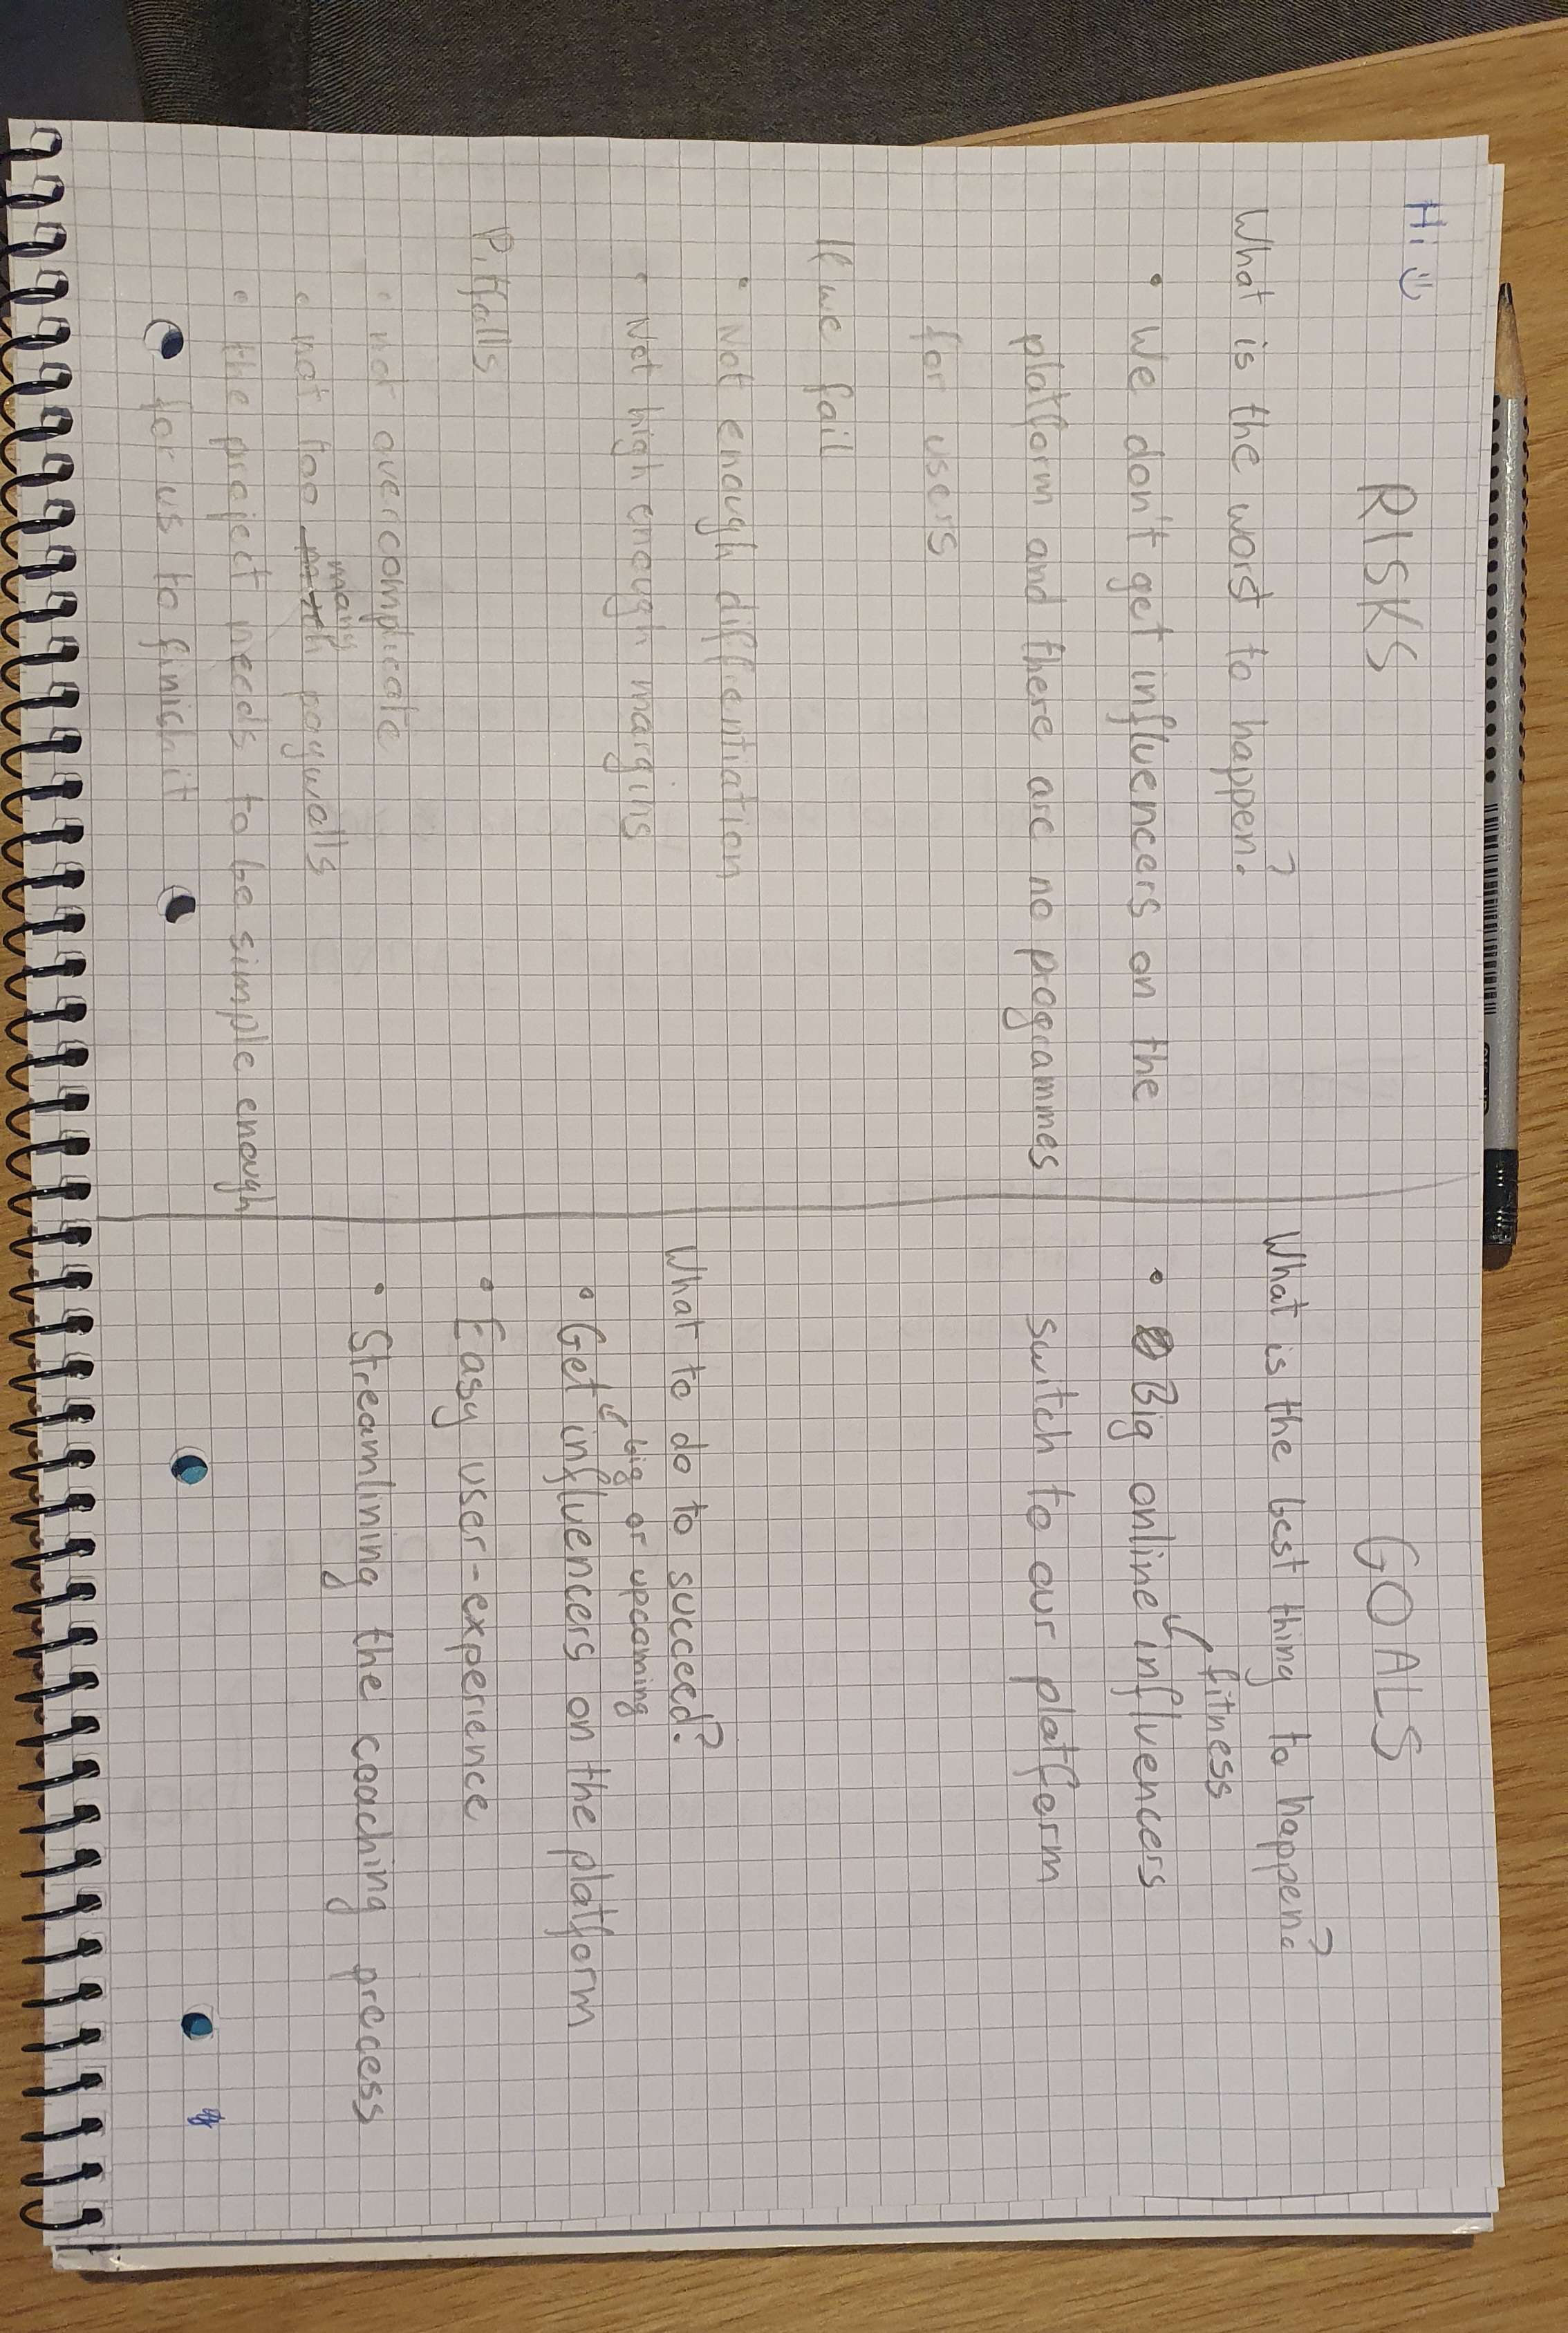 Hi :)
RISKS
What is the worst to happen?
• We don't get influencers on the
platform and there are no programmes
for users
If we fail
• Not enough differentiation
• Not high enough margins
Pitfalls
• not overcomplicate
many
• not too paywalls
• the project needs to be simple enough
for us to finish it
GOALS
What is the best thing to happen?
fitness
• Big online influencers
switch to our platform
What to do to succeed?
big or upcoming
• Get influencers on the platform
• Easy user-experience
• Streamlining the coaching process